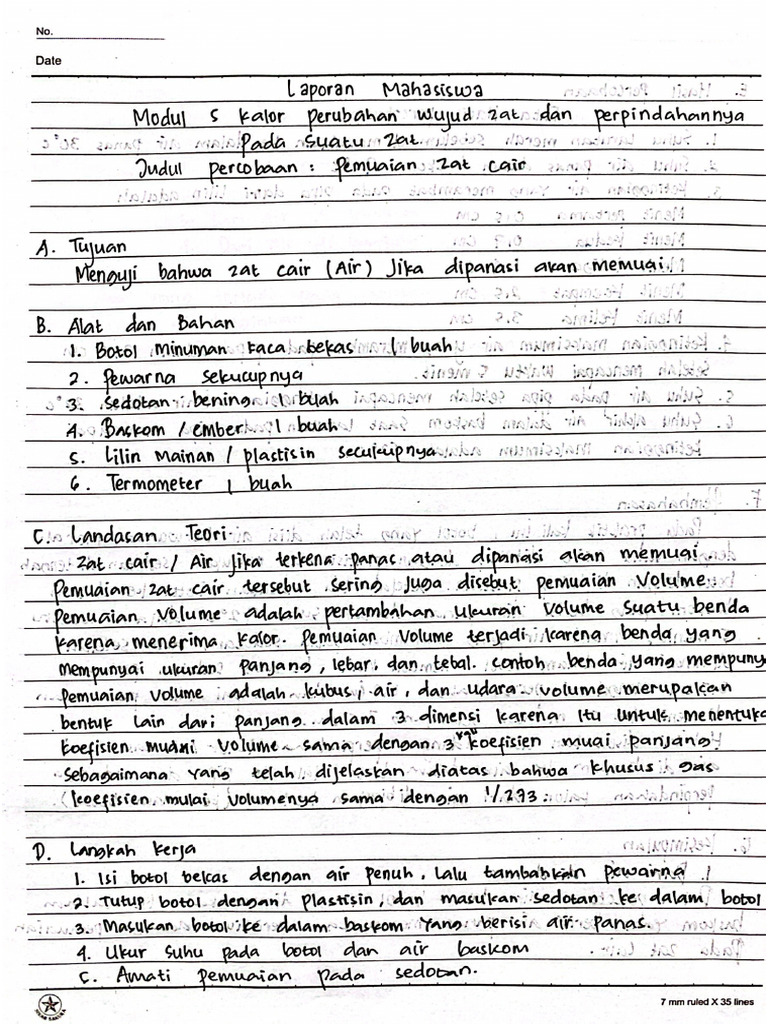 No.
Date
Laporan Mahasiswa
Modul 5 kalor perubahan wujud zat dan perpindahannya
Pada Suatu zat
Judul percobaan : Pemuaian zat cair
A. Tujuan
Menguji bahwa zat cair (Air) Jika dipanasi akan memuai.
B. Alat dan Bahan
1. Botol minuman kaca bekas 1 buah
2. Pewarna sekucupnya
3. sedotan bening 1 buah
4. Baskom / ember 1 buah
5. Lilin Mainan / plastisin secukupnya
6. Termometer 1 buah
C. Landasan Teori
Zat cair / Air Jika terkena panas atau dipanasi akan memuai
Pemuaian zat cair tersebut sering juga disebut pemuaian Volume.
Pemuaian Volume adalah pertambahan ukuran Volume suatu benda
karena menerima kalor. Pemuaian Volume terjadi karena benda yang
mempunyai ukuran panjang, lebar, dan tebal. contoh benda yang mempuny
pemuaian volume adalah kubus, air, dan udara. volume merupakan
bentuk lain dari panjang dalam 3 dimensi karena itu untuk menentuka
koefisien muai volume sama dengan 3 koefisien muai panjang
Sebagaimana yang telah dijelaskan diatas bahwa khusus gas
koefisien mulai volumenya sama dengan 1/273.
D. Langkah kerja
1. Isi botol bekas dengan air penuh, lalu tambahkan pewarna
2. Tutup botol dengan plastisin, dan masukan sedotan ke dalam botol
3. Masukan botol ke dalam baskom yang berisi air panas.
4. Ukur suhu pada botol dan air baskom
5. Amati pemuaian pada sedotan.
7 mm ruled X 35 lines